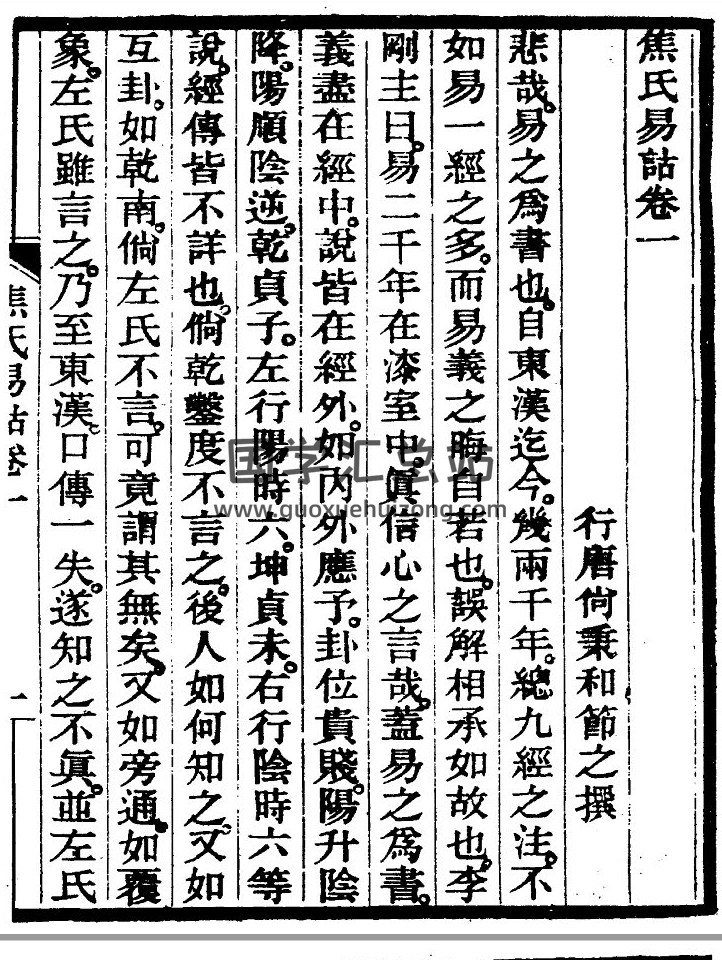 焦氏易詁卷一
行唐尙秉和節之撰
悲哉。易之爲書也。自東漢迄今。幾兩千年。總九經之注。不
如易一經之多。而易義之晦自若也。誤解相承如故也。李
剛主曰。易二千年在漆室中。眞信心之言哉。蓋易之爲書。
義盡在經中。說皆在經外。如內外應予。卦位貴賤。陽升陰
降。陽順陰逆。乾貞子。左行陽時六。坤貞未。右行陰時六等
說。經傳皆不詳也。倘乾鑿度不言之。後人如何知之。又如
互卦。如乾南。倘左氏不言。可竟謂其無矣。又如旁通。如覆
象。左氏雖言之。乃至東漢口傳一失。遂知之不眞。並左氏
焦氏易詁卷一
一
国学汇总站
www.guoxuehuizong.com